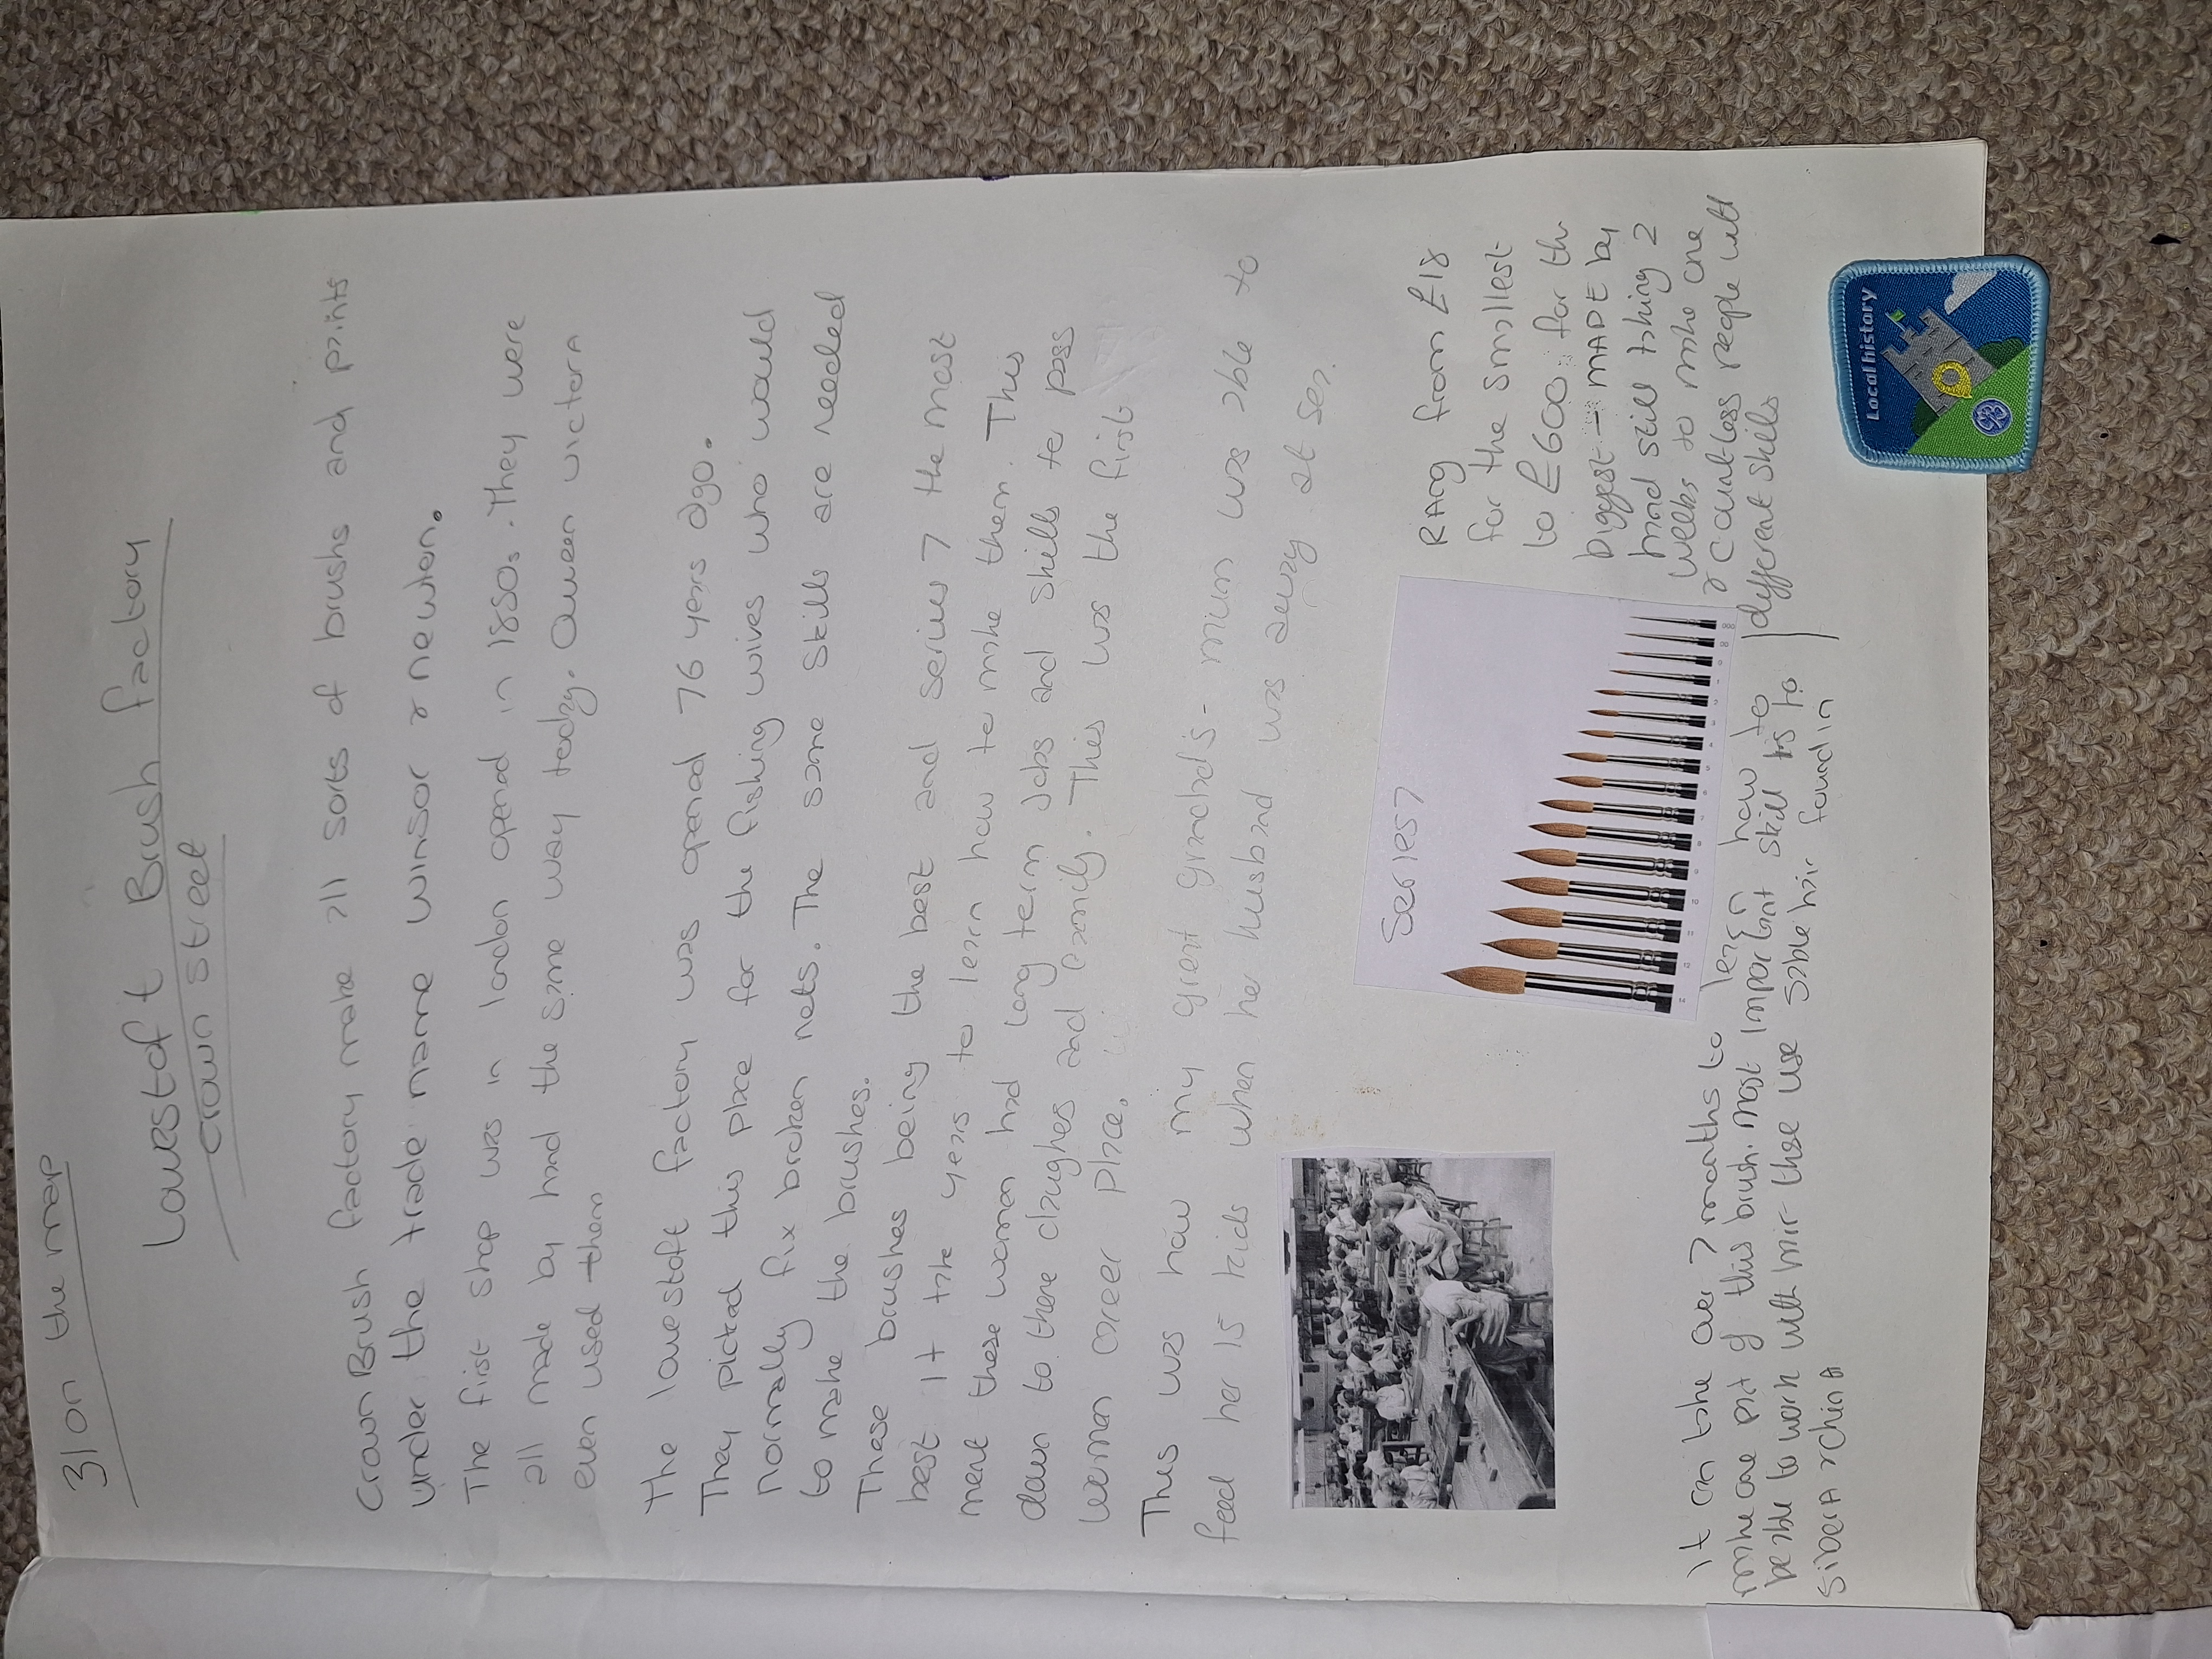 31 on the map
Lowestoft Brush factory
crown street
Crown Brush factory make all sorts of brushs and paints
under the trade name winsor & newton.
The first shop was in london opend in 1850s. They were
all made by hand the same way today. Queen victera
even used them
The lowestoft factory was opend 76 years ago.
They picked this place for the fishing wives who would
normally fix broken nets. The same skills are needed
to make the brushes.
These brushes being the best and series 7 the most
best It take years to learn how to make them. This
ment these woman had long term jobs and skills to pass
down to there daughes and family. This was the first
woman career place.
This was how my great grandad's - mum was able to
feed her 15 kids when her husband was away at sea.
Series 7
Rang from £18
for the smallest
to £600 for the
biggest - MADE by
hand still taking 2
weeks to make one
& countless people with
different skills
It can take over 7 months to learn how to
make one part of this brush. most important skill is to
be able to work with hair these use sable hair found in
SiberiA & chinA
Local history